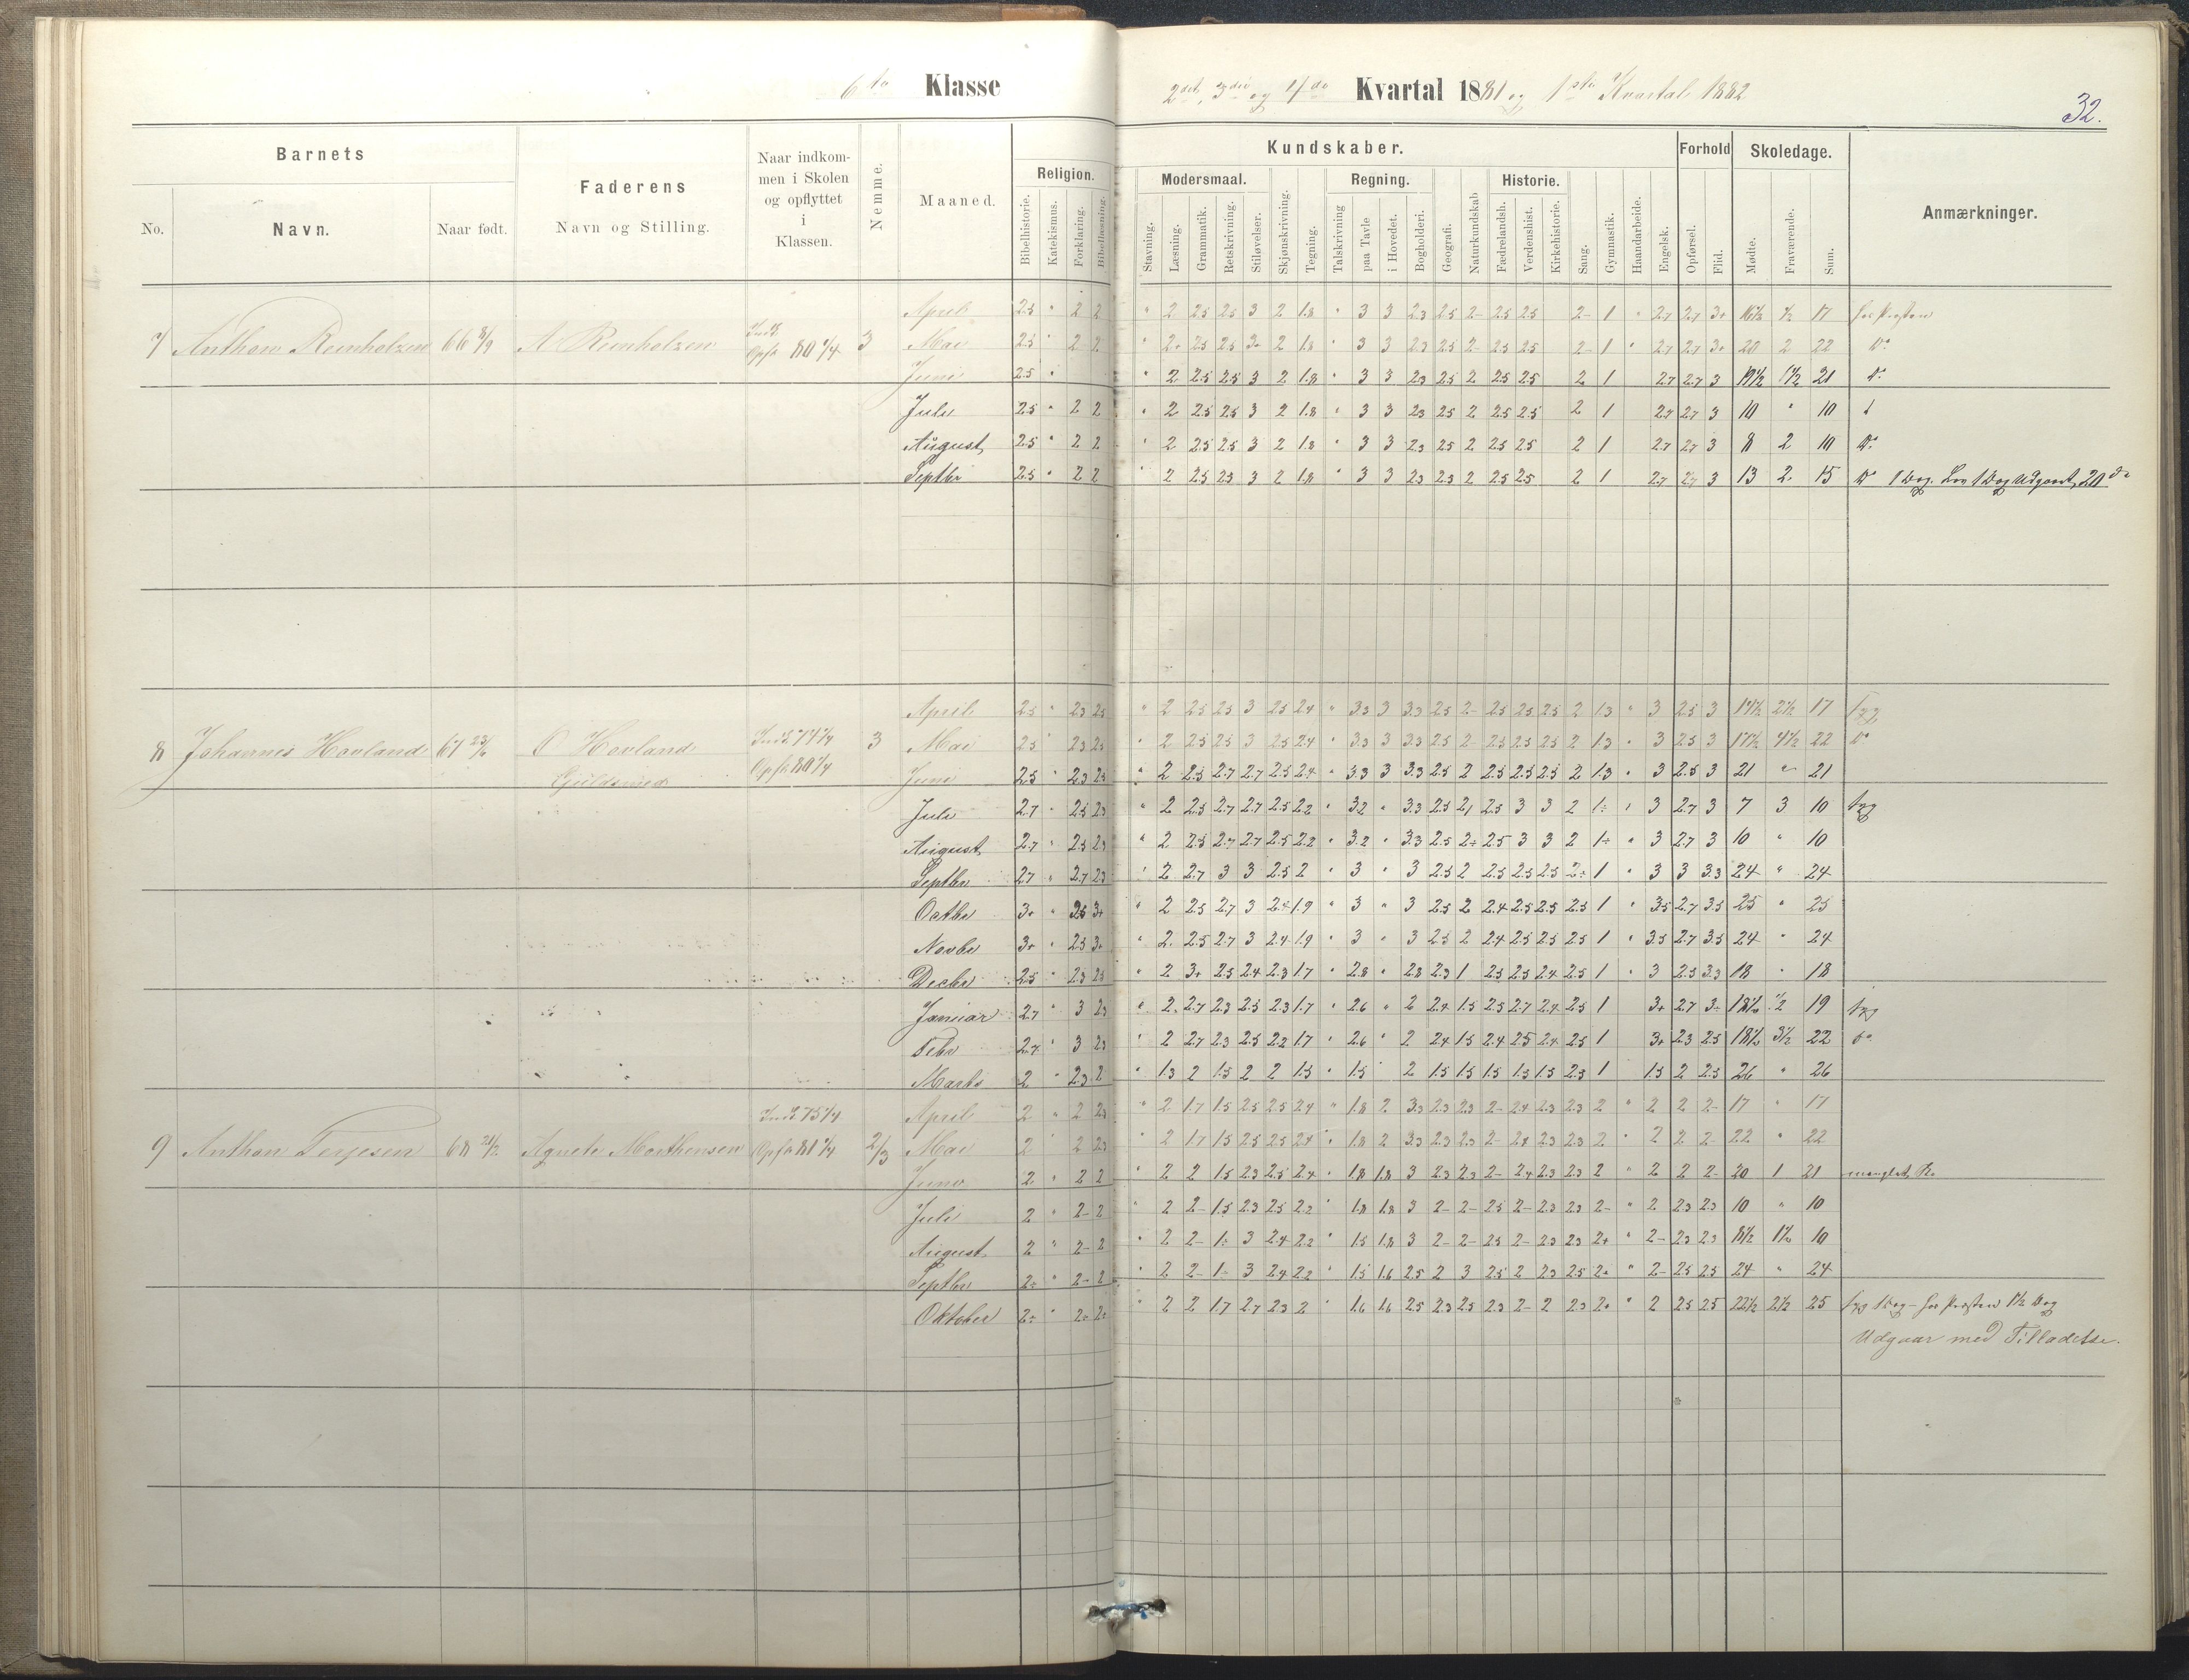 6te Klasse
2det, 3die og 4de Kvartal 1881 og 1ste Kvartal 1882
32.
Barnets
No.
Navn.
Naar født.
Faderens
Navn og Stilling.
Naar indkom-
men i Skolen
og opflyttet
i
Klassen.
Nemme.
Maaned.
Kundskaber.
Religion.
Bibelhistorie.
Katekismus.
Forklaring.
Bibellæsning.
Modersmaal.
Stavning.
Læsning.
Grammatik.
Retskrivning.
Stiløvelser.
Skjønskrivning.
Tegning.
Regning.
Talskrivning
paa Tavle
i Hovedet.
Bogholderi.
Geografi.
Naturkundskab
Historie.
Fædrelandsh.
Verdenshist.
Kirkehistorie.
Sang.
Gymnastik.
Haandarbeide.
Engelsk.
Forhold
Opførsel.
Flid.
Skoledage.
Mødte.
Fraværende.
Sum.
Anmærkninger.
7 Anthon Reinholzen 66 8/9 A Reinholzen Indk Opf. 80 1/4 3
April 2.5 " 2 2 " 2 2.5 2.5 3 2 1.8 " 3 3 2.3 2.5 2- 2.5 2.5 2- 1 " 2.7 2.7 3+ 16½ ½ 17 hos Præsten
Mai 2.5 " 2 2 " 2+ 2.5 2.5 3+ 2 1.8 " 3 3 2.3 2.5 2- 2.5 2.5 2- 1 " 2.7 2.7 3+ 20 2 22 Do
Juni 2.5 " " 2 2.5 2.5 3 2 1.8 " 3 3 2.3 2.5 2 2.5 2.5 2 1 2.7 2.7 3 19½ 1½ 21 Do
Juli 2.5 " 2 2 " 2 2.5 2.5 3 2 1.8 " 3 3 2.3 2.5 2 2.5 2.5 2 1 2.7 2.7 3 10 " 10
August 2.5 " 2 2 " 2 2.5 2.5 3 2 1.8 " 3 3 2.3 2.5 2 2.5 2.5 2 1 2.7 2.7 3 8 2 10 Do
Septbr 2.5 " 2 2 " 2 2.5 2.3 3 2 1.8 " 3 3 2.3 2.3 2 2.5 2.5 2 1 2.7 2.7 3 13 2 15 Do 1 Dag. Lov 1 Dag Udgaaet 20de
8 Johannes Hovland 67 23/6 O Hovland Guldsmed Indk 74 1/4 Opf. 80 1/4 3
April 2.5 " 2.3 2.5 " 2 2.5 2.5 3 2.5 2.4 " 3.3 3 3.3 2.5 2- 2.5 2.5 2.5 2 1.3 " 3 2.5 3 14½ 2½ 17 syg
Mai 2.5 " 2.3 2.5 " 2 2.5 2.5 3 2.5 2.4 " 3.3 3 3.3 2.5 2- 2.5 2.5 2.5 2 1.3 " 3 2.5 3 17½ 4½ 22 Do
Juni 2.5 " 2.3 2.5 " 2 2.5 2.7 2.7 2.5 2.4 " 3.3 3 3.3 2.5 2 2.5 2.5 2.5 2 1.3 " 3 2.5 3 21 " 21
Juli 2.7 " 2.5 2.3 " 2 2.5 2.7 2.7 2.5 2.2 " 3.2 " 3.3 2.5 2.5 3 3 2 1÷ " 3 2.7 3 7 3 10 syg
August 2.7 " 2.5 2.3 " 2 2.5 2.7 2.7 2.5 2.2 " 3.2 " 3.3 2.5 2÷ 2.5 3 3 2 1÷ " 3 2.7 3 10 " 10
Septbr 2.7 " 2.7 2.3 " 2 2.7 3 3 2.5 2 " 3 " 3 2.5 2 2.5 2.5 2.5 2÷ 1 " 3 3 3.3 24 " 24
Octbr 3+ " 2.5 3+ " 2 2.5 2.7 3 2.4 1.9 " 3 " 3 2.5 2 2.4 2.5 2.5 2.5 1 " 3.5 2.7 3.5 25 " 25
Novbr 3+ " 2.5 3+ " 2 2.5 2.7 3 2.4 1.9 " 3 " 3 2.5 2 2.4 2.5 2.5 2.5 1 " 3.5 2.7 3.5 24 " 24
Decbr 2.5 " 2.3 2.5 " 2 3+ 2.5 2.4 2.3 1.7 " 2.8 " 2.8 2.3 1 2.5 2.5 2.4 2.5 1 " 3 2.5 3.3 18 " 18
Januar 2.7 " 3 2.3 " 2 2.7 2.3 2.5 2.3 1.7 " 2.6 " 2 2.4 1.5 2.5 2.7 2.4 2.5 1 3+ 2.7 3÷ 18½ ½ 19 syg
Febr 2.7 " 3 2.3 " 2 2.7 2.3 2.5 2.2 1.7 " 2.6 " 2 2.4 1.5 2.4 2.5 2.4 2.5 1 3+ 2.3 2.5 18½ 3½ 22 Do
Marts 2 " 2.3 2 " 1.3 2 1.5 2 2 1.5 " 1.5 2 1.5 1.5 1.5 1.5 1.5 2.3 1 1.5 2 2.5 26 " 26
9 Anthon Terjesen 68 21/2 Agnete Morthensen Indk 75 1/4 Opf. 81 1/4 2/3
April 2 " 2 2.3 " 2 1.7 1.5 2.5 2.5 2.4 " 1.8 2 3.3 2.3 2.3 2- 2.4 2.3 2.3 2 " 2 2 2- 17 " 17
Mai 2 " 2 2.3 " 2 1.7 1.5 2.5 2.5 2.4 " 1.8 2 3.3 2.3 2.3 2- 2.4 2.3 2.3 2 " 2 2 2- 22 " 22
Juni 2 " 2 2 " 2 2 1.5 2.3 2.5 2.4 " 1.8 1.8 3 2.3 2.3 2- 2.4 2.3 2.3 2 " 2 2 2- 20 1 21
Juli 2 " 2- 2 " 2 2- 1.5 2.3 2.5 2.2 " 1.8 1.8 3 2- 2- 2.5 2- 2.3 2.3 2- " 2 2.3 2.3 10 " 10
August 2 " 2- 2 " 2 2- 1÷ 3 2.4 2.2 " 1.5 1.8 3 2- 2- 2.5 2- 2.3 2.3 2+ " 2- 2.3 2.3 8½ 1½ 10
Septbr 2÷ " 2- 2 " 2 2- 1÷ 3 2.4 2.2 " 1.5 1.6 2.5 2 3 2.5 2 2.3 2.5 2+ " 2- 2.5 2.5 24 " 24
Oktober 2÷ " 2÷ 2÷ " 2 2 1.7 2.7 2.3 2 " 1.6 1.6 2.5 2.3 2.5 2.3 2- 2 2.3 2+ " 2 2.5 2.5 22½ 2½ 25 syg 1 Dag - hos Præsten 1½ Dag
Udgaar med Tilladelse.